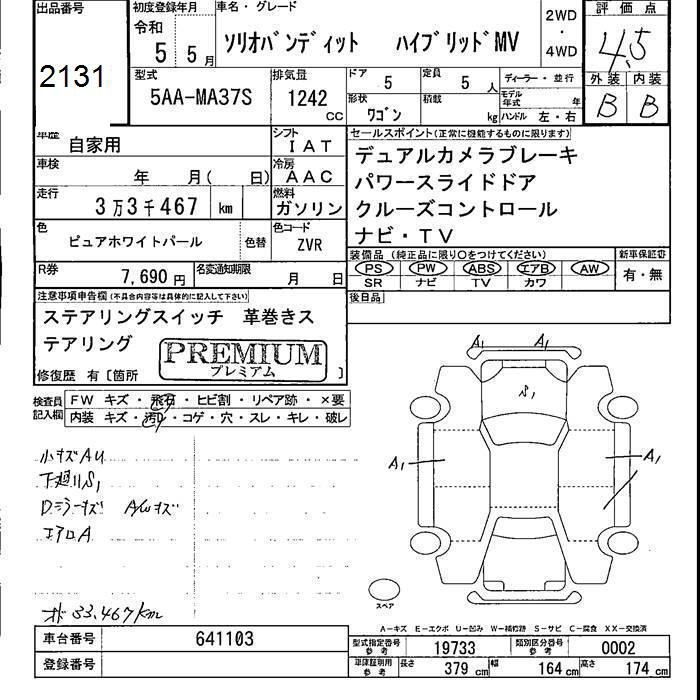 出品番号
2131
初度登録年月
令和
5 5月
車名・グレード
ソリオバンディット ハイブリッドMV
2WD
・
4WD
評価点
4.5
外装 内装
B B
型式
5AA-MA37S
排気量
1242 CC
ドア 5
定員 5 人
ディーラー・並行
形状 ワゴン
積載 kg
モデル年式 年
ハンドル 左・右
車歴 自家用
シフト IAT
車検 年 月( 日)
冷房 AAC
走行 3万3千467 km
燃料 ガソリン
色 ピュアホワイトパール 色替
色コード ZVR
R券 7,690円
名変通知期限 月 日
セールスポイント(正常に機能するものに限ります)
デュアルカメラブレーキ
パワースライドドア
クルーズコントロール
ナビ・TV
装備品(純正品に限り○をつけてください)
新車保証書
PS PW ABS エアB AW
SR ナビ TV カワ
有・無
後日品
注意事項申告欄(不具合内容等は具体的に記入して下さい)
ステアリングスイッチ 革巻きス
テアリング
PREMIUM
プレミアム
修復歴 有〔箇所 〕
検査員記入欄
FW キズ・飛石・ヒビ割・リペア跡・×要
内装 キズ・汚れ・コゲ・穴・スレ・キレ・破レ
小キズAU
下廻りS1
Dミラーキズ AWキズ
エアロA
オド 33.467km
A1 A1
S1
A1 A1
スペア
A-キズ E-エクボ U-凹み W-補修跡 S-サビ C-腐食 XX-交換済
車台番号 641103
登録番号
型式指定番号 参考 19733
類別区分番号 参考 0002
車庫証明用 参考
長さ 379 cm 幅 164 cm 高さ 174 cm